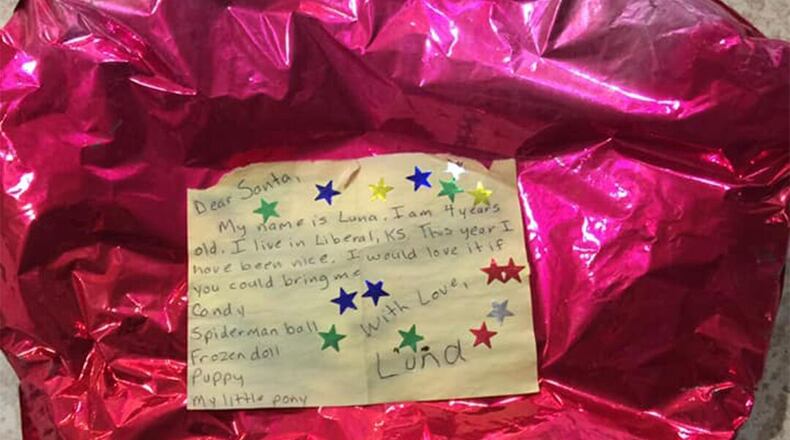 Dear Santa,
My name is Luna. I am 4 years
old. I live in Liberal, KS. This year I
have been nice. I would love it if
you could bring me
Candy
Spiderman ball
Frozen doll
Puppy
My little pony
With Love,
Luna